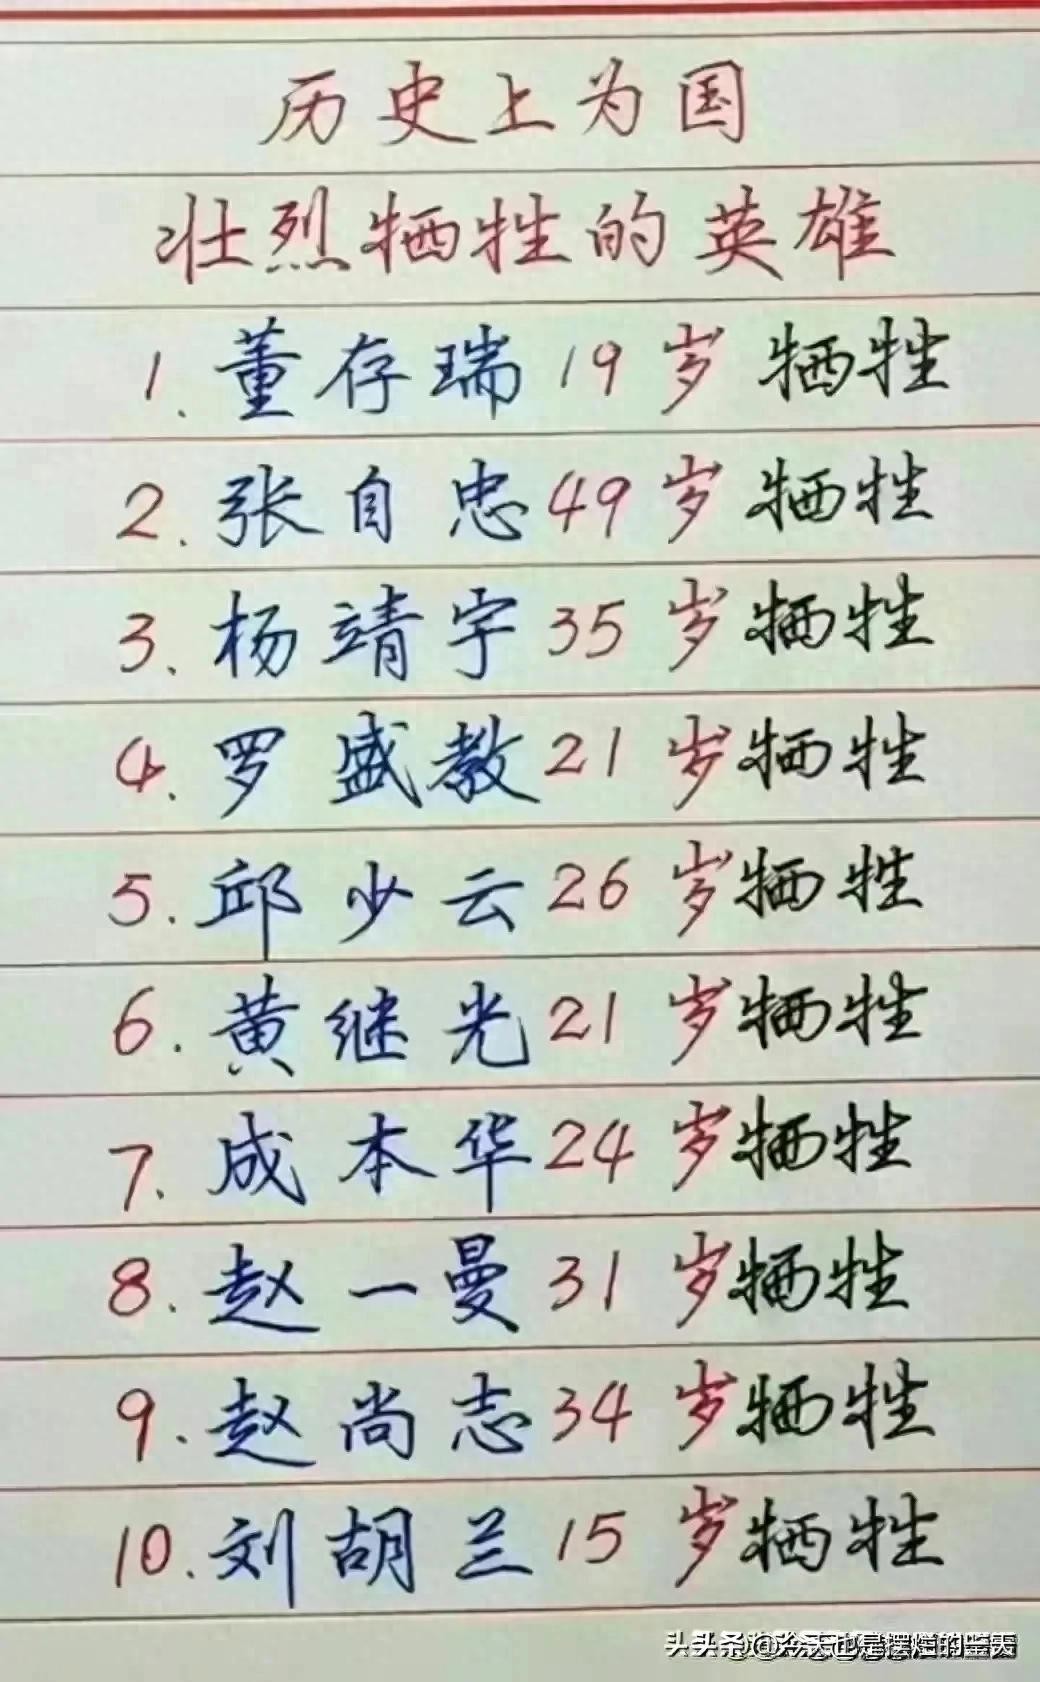 历史上为国
壮烈牺牲的英雄
1. 董存瑞 19岁 牺牲
2. 张自忠 49岁 牺牲
3. 杨靖宇 35岁 牺牲
4. 罗盛教 21岁 牺牲
5. 邱少云 26岁 牺牲
6. 黄继光 21岁 牺牲
7. 成本华 24岁 牺牲
8. 赵一曼 31岁 牺牲
9. 赵尚志 34岁 牺牲
10. 刘胡兰 15岁 牺牲
头条 @今天也是摆烂的